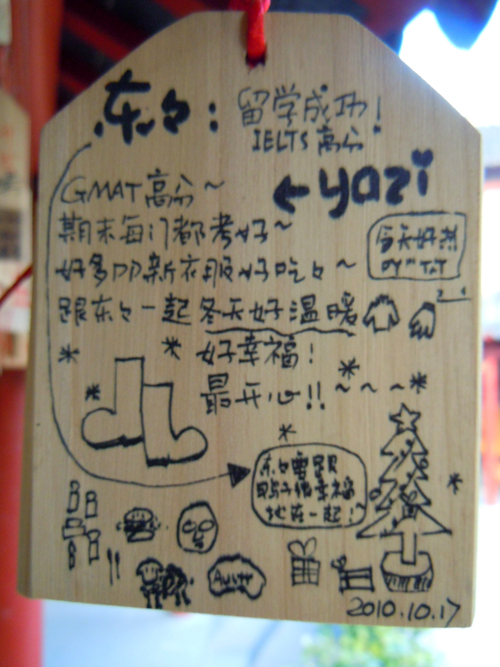 东々: 留学成功!
IELTS 高分
← yazi
GMAT高分~
期末每门都考好~
好多叩新衣服好吃々~
今天好热
吖~ T.T
跟东々一起冬天好温暖
好幸福!
最开心!!~~~
东々要跟
鸭子很幸福
地在一起!
2010.10.17